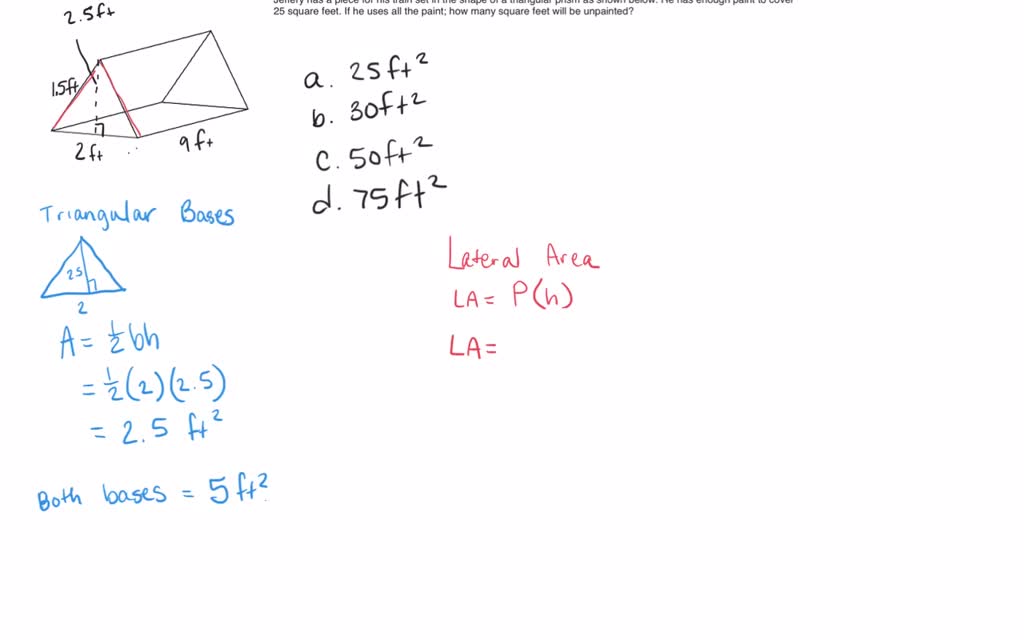 Jeffery has a piece for his train set in the shape of a triangular prism as shown below. He has enough paint to cover
25 square feet. If he uses all the paint; how many square feet will be unpainted?
2.5ft
1.5ft
2ft
9ft
a. 25ft²
b. 30ft²
c. 50ft²
d. 75ft²
Triangular Bases
2.5
2
A = ½bh
= ½(2)(2.5)
= 2.5 ft²
Both bases = 5ft²
Lateral Area
LA = P(h)
LA =